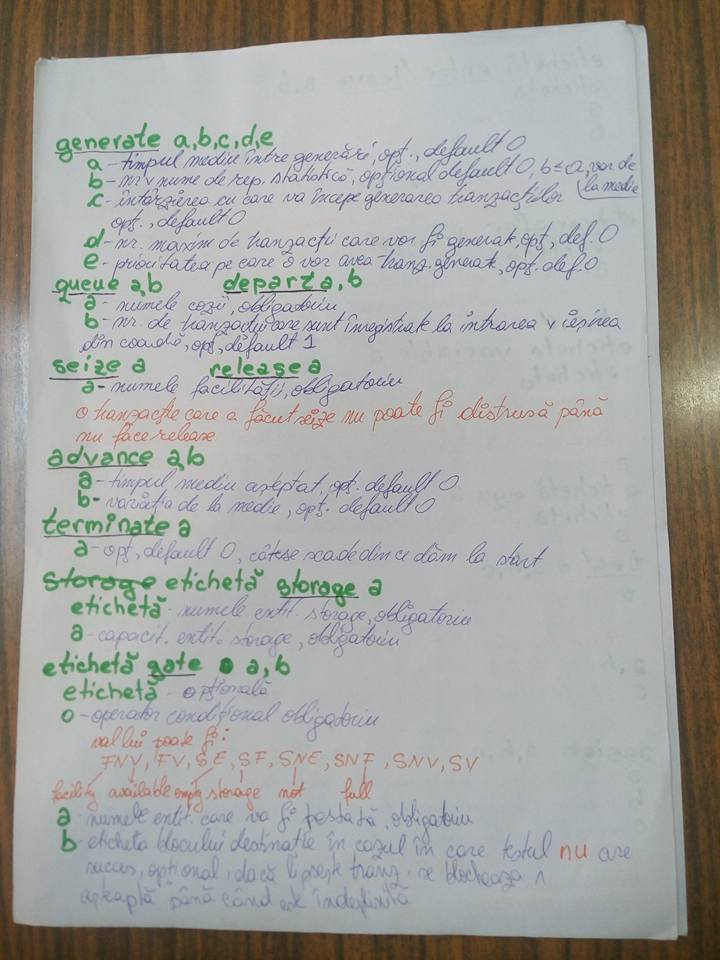 generate a,b,c,d,e
a - timpul mediu între generări, opț., default 0
b - nr v nume de rep. statistică, opțional default 0, b ≤ a, var de la medie
c - întârzierea cu care va începe generarea tranzacțiilor
opț., default 0
d - nr. maxim de tranzacții care vor fi generate, opț, def. 0
e - prioritatea pe care o vor avea tranz. generate, opț. def. 0
queue a,b departa,b
a - numele cozii, obligatoriu
b - nr. de tranzacții care sunt înregistrate la intrarea v ieșirea
din coadă, opț, default 1
seize a release a
a - numele facilității, obligatoriu
o tranzacție care a făcut seize nu poate fi distrusă până
nu face release
advance a,b
a - timpul mediu așteptat, opț. default 0
b - variația de la medie, opț. default 0
terminate a
a - opț, default 0, cât se scade din ce dăm la start
Storage etichetă storage a
etichetă - numele entit. storage, obligatoriu
a - capacit. entit. storage, obligatoriu
etichetă gate o a,b
etichetă - opțională
o - operator condițional obligatoriu
val lui poate fi:
FNV, FV, SE, SF, SNE, SNF, SNV, SV
facility available empty storage not full
a - numele entit. care va fi testată, obligatoriu
b - eticheta blocului destinație în cazul în care testul nu are
succes, opțional, dacă lipsește tranz. se blochează ∧
așteaptă până când este îndeplinită